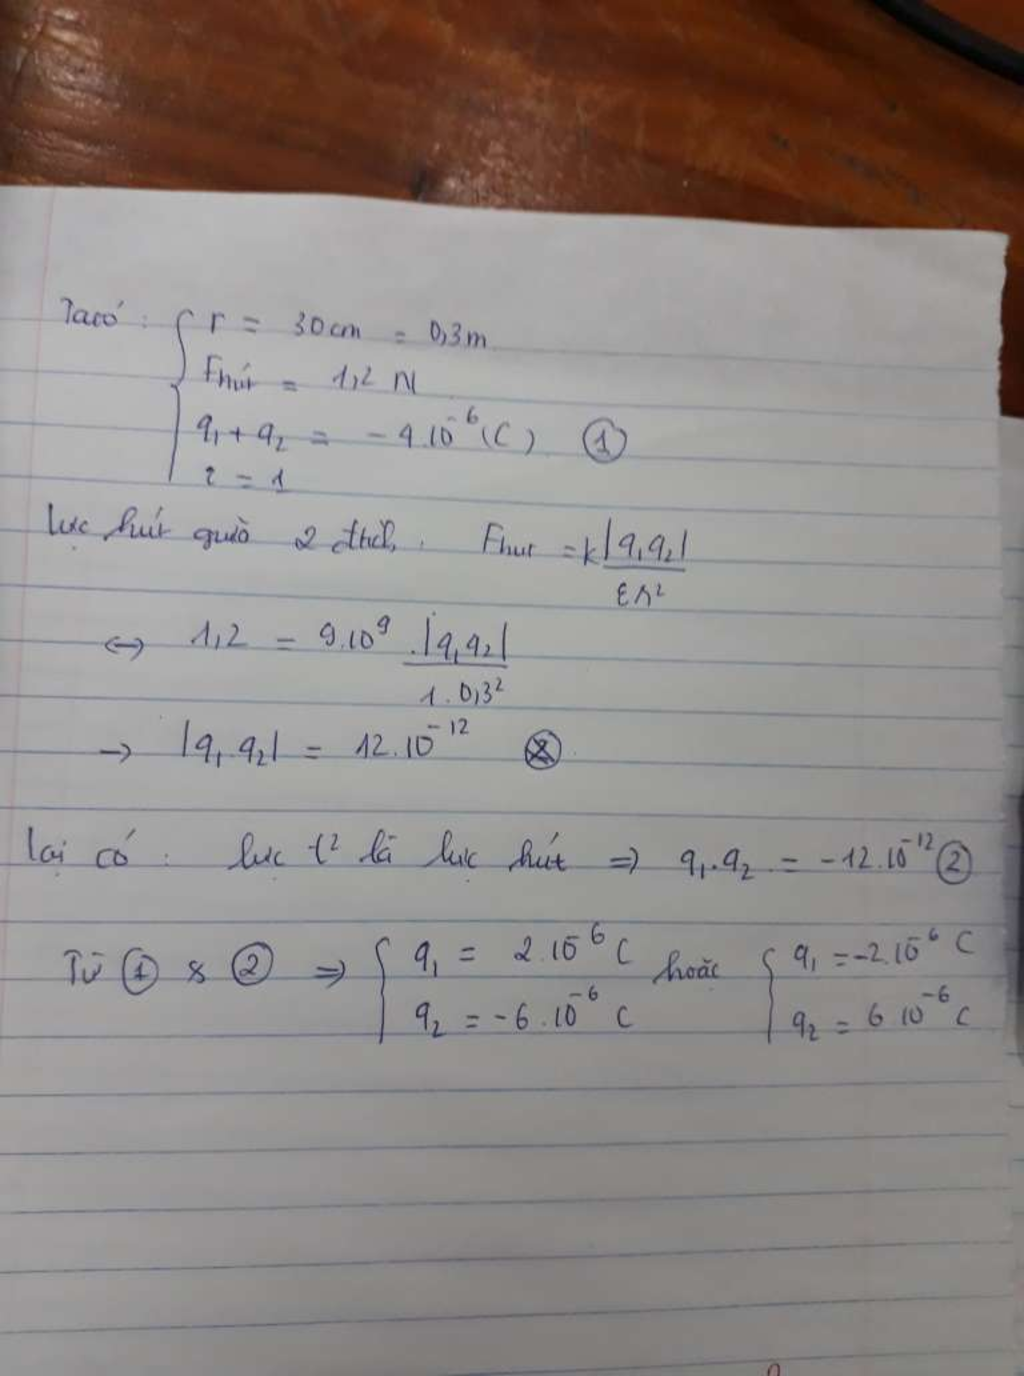 Ta có : r = 30cm = 0,3m
Fhút = 1,2 N
q₁ + q₂ = - 4.10⁻⁶ (C) ①
ε = 1
lực hút giữa 2 đtích. Fhut = k|q₁q₂| / εr²
↔ 1,2 = 9.10⁹ . |q₁q₂| / 1.0,3²
→ |q₁.q₂| = 12.10⁻¹²
lại có : lực t² là lực hút ⇒ q₁.q₂ = -12.10⁻¹² ②
Từ ① & ② ⇒ { q₁ = 2.10⁻⁶ C hoặc { q₁ = -2.10⁻⁶ C
q₂ = -6.10⁻⁶ C q₂ = 6 10⁻⁶ C